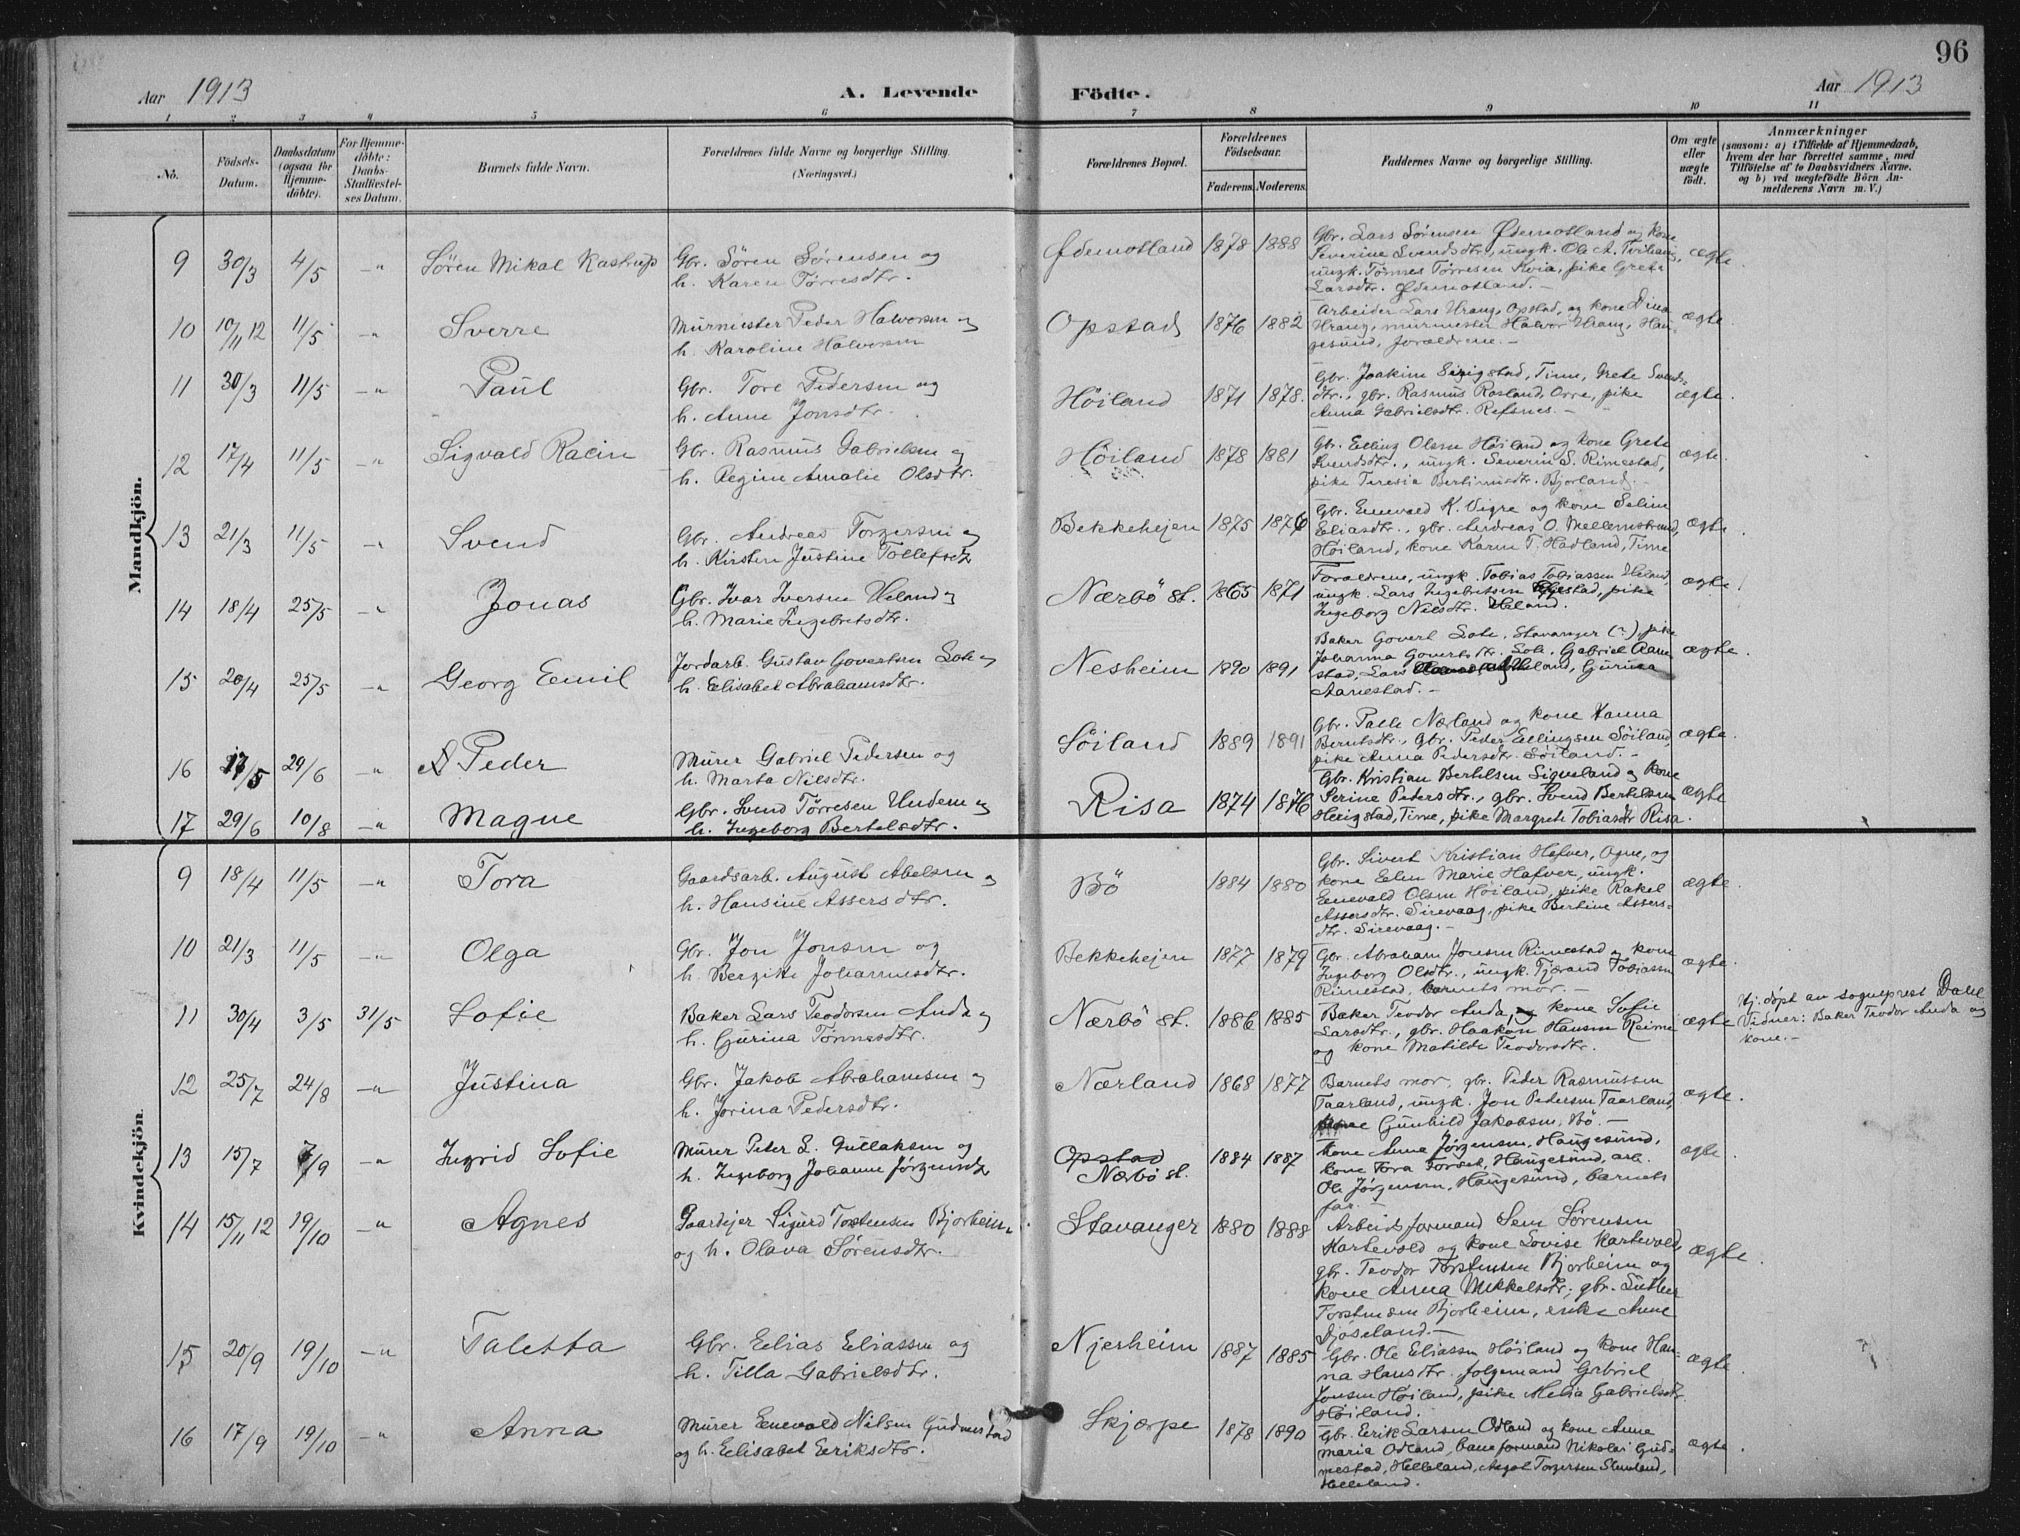 96
Aar 1913
A. Levende Födte.
Aar 1913
1 2 3 4 5 6 7 8 9 10 11
No.
Födsels-Datum.
Daabsdatum (ogsaa for Hjemmedöbte).
For Hjemmedöbte: Daabs-Stadfæstelses Datum.
Barnets fulde Navn.
Forældrenes fulde Navne og borgerlige Stilling.
(Næringsvei.)
Forældrenes Bopæl.
Forældrenes Fødselsaar.
Faderens. Moderens.
Faddernes Navne og borgerlige Stilling.
Om ægte eller uægte födt.
Anmærkninger
(saasom: a) i Tilfælde af Hjemmedaab, hvem der har forrettet samme, med Tilföielse af to Daabsvidners Navne, og b) ved uægtefödte Börn Anmelderens Navn m. V.)
Mandkjön.
9 30/3 4/5 -"- Sören Mikal Kastrup
Gbr. Sören Sørensen og
h. Karen Tørresdtr.
Ødemotland 1878 1888
Gbr. Lars Sørensen Ødemotland og kone
Severine Svendsdtr., ungk. Ole A.
ungk. Tønnes Tørresen Kvia, pike Grete
Larsdtr. Ødemotland.-
ægte.
10 10/11 12 11/5 -"- Sverre
Murmester Peder Halvorsen og
h. Karoline Halvorsen
Opstad 1876 1882
Arbeider Lars Vrang, Opstad, og kone Dina
Vrang, murmester Halvor Vrang, Hau-
gesund, forældrene.-
ægte.
11 30/3 11/5 -"- Paul
Gbr. Tore Pedersen og
h. Anne Jonsdtr.
Høiland 1871 1878.
Gbr. Joakim Sirigstad, Time, Grete Svends-
dtr., gbr. Rasmus Rosland, Orre, pike
Anna Gabrielsdtr. Refsnes.-
ægte.
12 17/4 11/5 -"- Sigvald Racin
Gbr. Rasmus Gabrielsen og
h. Regine Amalie Olsdtr.
Høiland 1878 1881
Gbr. Elling Olsen Høiland og kone Grete
Svendsdtr., ungk. Severin S. Rimestad,
pike Teresia Bertinusdtr. Bjorland.-
ægte.
13 21/3 11/5 -"- Svend
Gbr. Andreas Torgersen og
h. Kirsten Justine Tollefsdtr
Bekkehejen 1875 1876
Gbr. Enevald K. Vigre og kone Seline
Eliasdtr., gbr. Andreas O. Mellemstrand,
Høiland, kone Karen T. Hadland, Time
ægte.
14 18/4 25/5 -"- Jonas
Gbr. Ivar Iversen Heland og
h. Marie Ingebretsdtr.
Nærbö st. 1865 1871
Forældrene, ungk. Tobias Tobiassen Heland,
ungk. Lars Ingebretsen pike
Ingeborg Nilsdtr. Heland.
ægte.
15 20/4 25/5 -"- Georg Emil
Jordarb. Gustav Govertsen Lote og
h. Elisabet Abrahamsdtr.
Nesheim 1890 1891
Baker Govert Lote, Stavanger (?), pike
Johanna Govertsdtr. Lote, Gabriel Aane-
stad, Lars Heland, Gurina
Aanestad.-
ægte.
16 17/5 29/6 -"- Peder
Murer Gabriel Pedersen og
h. Marta Nilsdtr.
Søiland 1889 1891
Gbr. Palle Nærland og kone Hanna
Berntsdtr., gbr. Peder Ellingsen Søiland,
pike Anna Pedersdtr. Søiland.-
ægte.
17 29/6 10/8 -"- Magne
Gbr. Svend Tørresen Undem og
h. Ingeborg Bertelsdtr.
Risa 1874 1876
Gbr. Kristian Bertelsen Sigveland og kone
Serine Pedersdtr., gbr. Svend Bertelsen
Heigstad, Time, pike Margrete Tobiasdtr Risa.
ægte
Kvindekjön.
9 18/4 11/5 -"- Tora
Gaardsarb. August Abelsen og
h. Hansine Assersdtr.
Bö 1884 1880
Gbr. Sivert Kristian Hafver, Ogne, og
kone Elen Marie Hafver, ungk.
Enevald Olsen Høiland, pike Rakel
Assersdtr. Sirevaag, pike Bertine Assers-
dtr. Sirevaag.-
ægte.
10 21/3 11/5 -"- Olga
Gbr. Jon Jonsen og
h. Bergite Johannesdtr.
Bekkehejen 1877 1879
Gbr. Abraham Jonsen Rimestad og kone
Ingeborg Olsdtr., ungk. Tjærand Tobiassen
Rimestad, barnets mor.-
ægte.
11 30/4 3/5 31/5 Sofie
Baker Lars Teodorsen Anda og
h. Gurina Tønnesdtr.
Nærbö st. 1886 1885
Bæker Teodor Anda, og kone Sofie
Larsdtr., gbr. Haakon Hansen Reime
og kone Matilde Teodorsdtr.
ægte
Hj. döpt av sogneprest Dahl
Vidner: Baker Teodor Anda og
kone.-
12 25/7 24/8 -"- Justina
Gbr. Jakob Abrahamsen og
h. Jorina Pedersdtr.
Nærland 1868 1877
Barnets mor, gbr. Peder Rasmussen
Taarland, ungk. Jon Pedersen Taarland,
Gunhild Jakobsen, Bö.-
ægte.
13 15/7 7/9 -"- Ingrid Sofie
Murer Peter L. Gullaksen og
h. Ingeborg Johanne Jörgensdtr
Opstad
Nærbö st.
1884 1887
Kone Anne Jørgensen, Haugesund,
kone Tora Haugesund, arb.
Ole Jørgensen, Haugesund, barnets
far.-
ægte.
14 15/11 12 19/10 -"- Agnes
Gaardejer Sigurd Torstensen Bjorheim
og h. Olava Sørensdtr.
Stavanger 1880 1888
Arbeidsformand Sem Sørensen
Kartevold og kone Lovise Kartevold,
gbr. Teodor Torstensen Bjorheim og
kone Anna Mikkelsdtr., gbr.
Torstensen Bjorheim, enke Anne
Djøseland.-
ægte.
15 20/9 19/10 -"- Taletta
Gbr. Elias Eliassen og
h. Tilla Gabrielsdtr.
Njerheim 1887 1885
Gbr. Ole Eliassen Høiland og kone Han-
na Hansdtr., folgemand Gabriel
Jonsen Høiland, pike Melia Gabrielsdtr.
Høiland.
ægte
16 17/9 19/10 -"- Anna
Murer Enevald Nilsen Gudmestad
og h. Elisabet Eeriksdtr.
Skjærpe 1878 1890
Gbr. Eerik Larsen Odland og kone Anne
Maria Odland, baneformand Nikolai Gud-
mestad, Helleland, Torgersen
Helleland.
ægte.